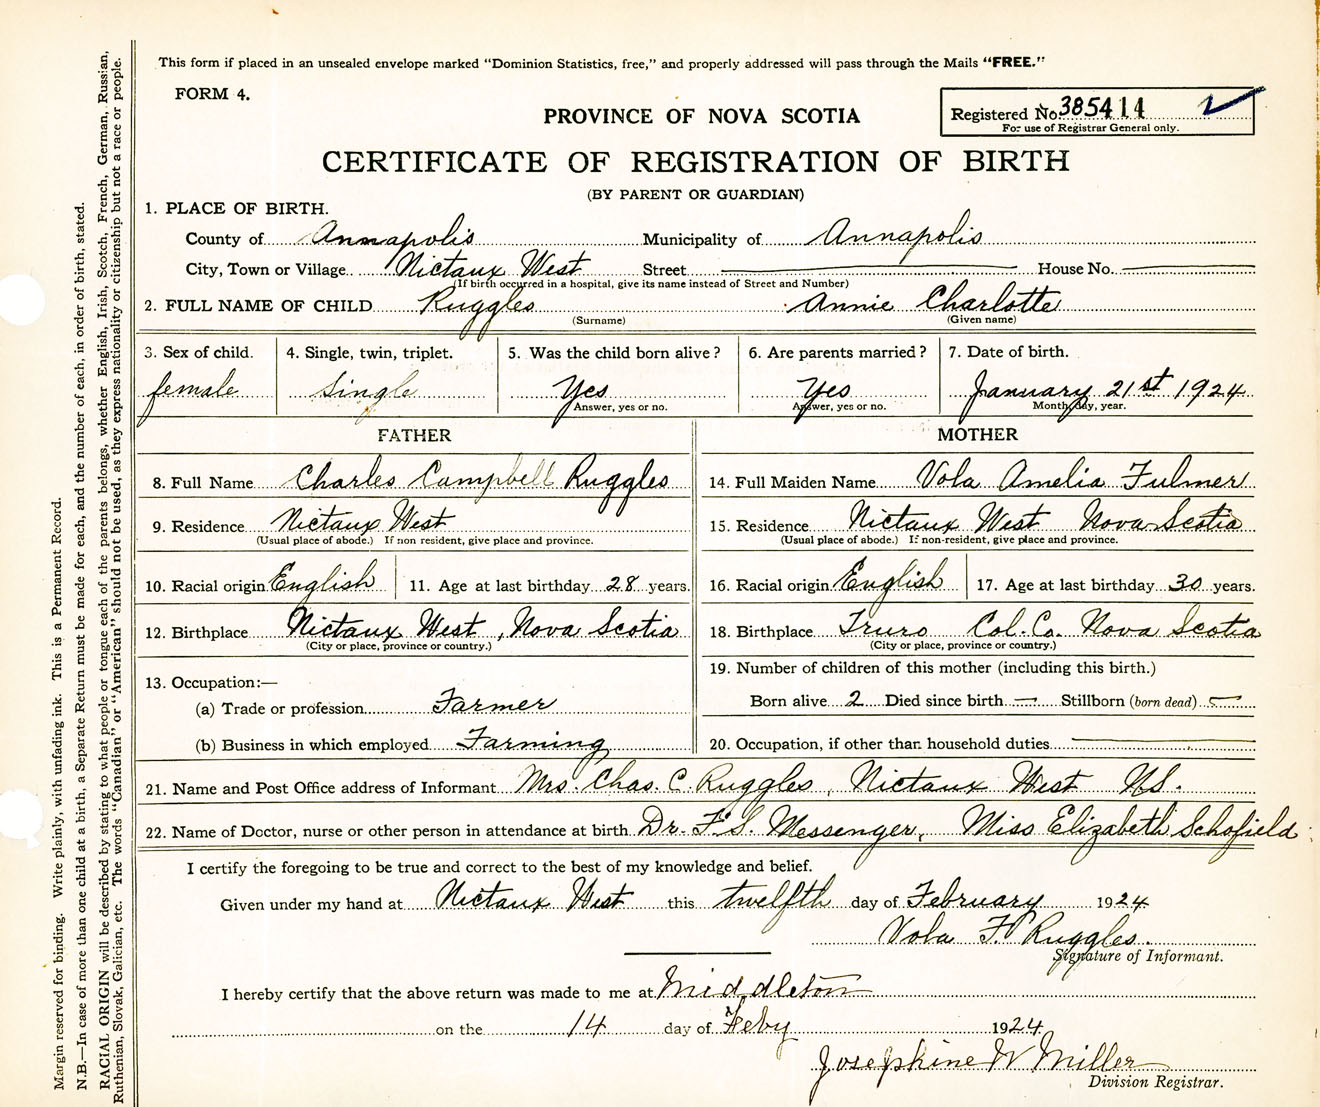 This form if placed in an unsealed envelope marked "Dominion Statistics, free," and properly addressed will pass through the Mails "FREE."
FORM 4.
PROVINCE OF NOVA SCOTIA
Registered No. 385414
For use of Registrar General only.
CERTIFICATE OF REGISTRATION OF BIRTH
(BY PARENT OR GUARDIAN)
1. PLACE OF BIRTH.
County of Annapolis Municipality of Annapolis
City, Town or Village Nictaux West Street House No.
(If birth occurred in a hospital, give its name instead of Street and Number)
2. FULL NAME OF CHILD Ruggles Annie Charlotte
(Surname) (Given name)
3. Sex of child. 4. Single, twin, triplet. 5. Was the child born alive? 6. Are parents married? 7. Date of birth.
female single Yes Yes January 21st 1924
Answer, yes or no. Answer, yes or no. Month, day, year.
FATHER MOTHER
8. Full Name Charles Campbell Ruggles 14. Full Maiden Name Vola Amelia Fulmer
9. Residence Nictaux West 15. Residence Nictaux West Nova Scotia
(Usual place of abode.) If non resident, give place and province. (Usual place of abode.) If non-resident, give place and province.
10. Racial origin English 11. Age at last birthday 28 years. 16. Racial origin English 17. Age at last birthday 30 years.
12. Birthplace Nictaux West, Nova Scotia 18. Birthplace Truro Col. Co. Nova Scotia
(City or place, province or country.) (City or place, province or country.)
13. Occupation:— 19. Number of children of this mother (including this birth.)
(a) Trade or profession Farmer Born alive 2 Died since birth — Stillborn (born dead) —
(b) Business in which employed Farming 20. Occupation, if other than household duties
21. Name and Post Office address of Informant Mrs. Chas. C. Ruggles, Nictaux West N.S.
22. Name of Doctor, nurse or other person in attendance at birth Dr. F. S. Messenger, Miss Elizabeth Schofield
I certify the foregoing to be true and correct to the best of my knowledge and belief.
Given under my hand at Nictaux West this twelfth day of February 1924
Vola F. Ruggles.
Signature of Informant.
I hereby certify that the above return was made to me at Middleton
on the 14 day of Feby 1924
Josephine W Miller
Division Registrar.
Margin reserved for binding. Write plainly, with unfading ink. This is a Permanent Record.
N.B.—In case of more than one child at a birth, a Separate Return must be made for each, and the number of each, in order of birth, stated.
RACIAL ORIGIN will be described by stating to what people or tongue each of the parents belongs, whether English, Irish, Scotch, French, German, Russian,
Ruthenian, Slovak, Galician, etc. The words "Canadian" or "American" should not be used, as they express nationality or citizenship but not a race or people.